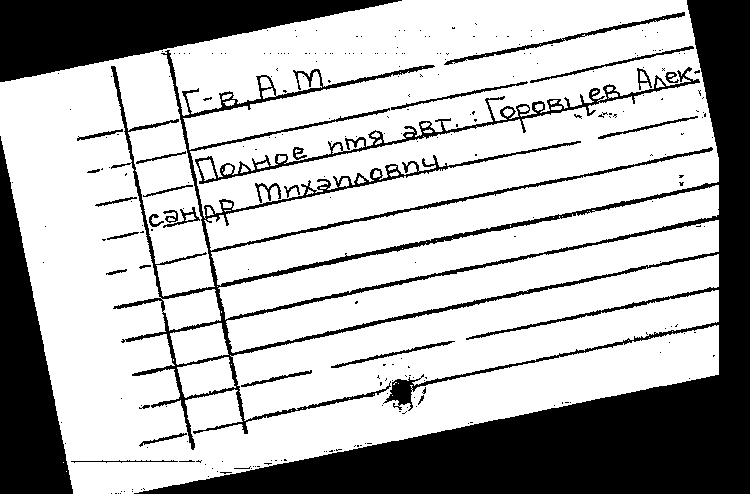 Г-в, А. М.
Полное имя авт. : Горовцев, Алек-
сандр Михайлович.